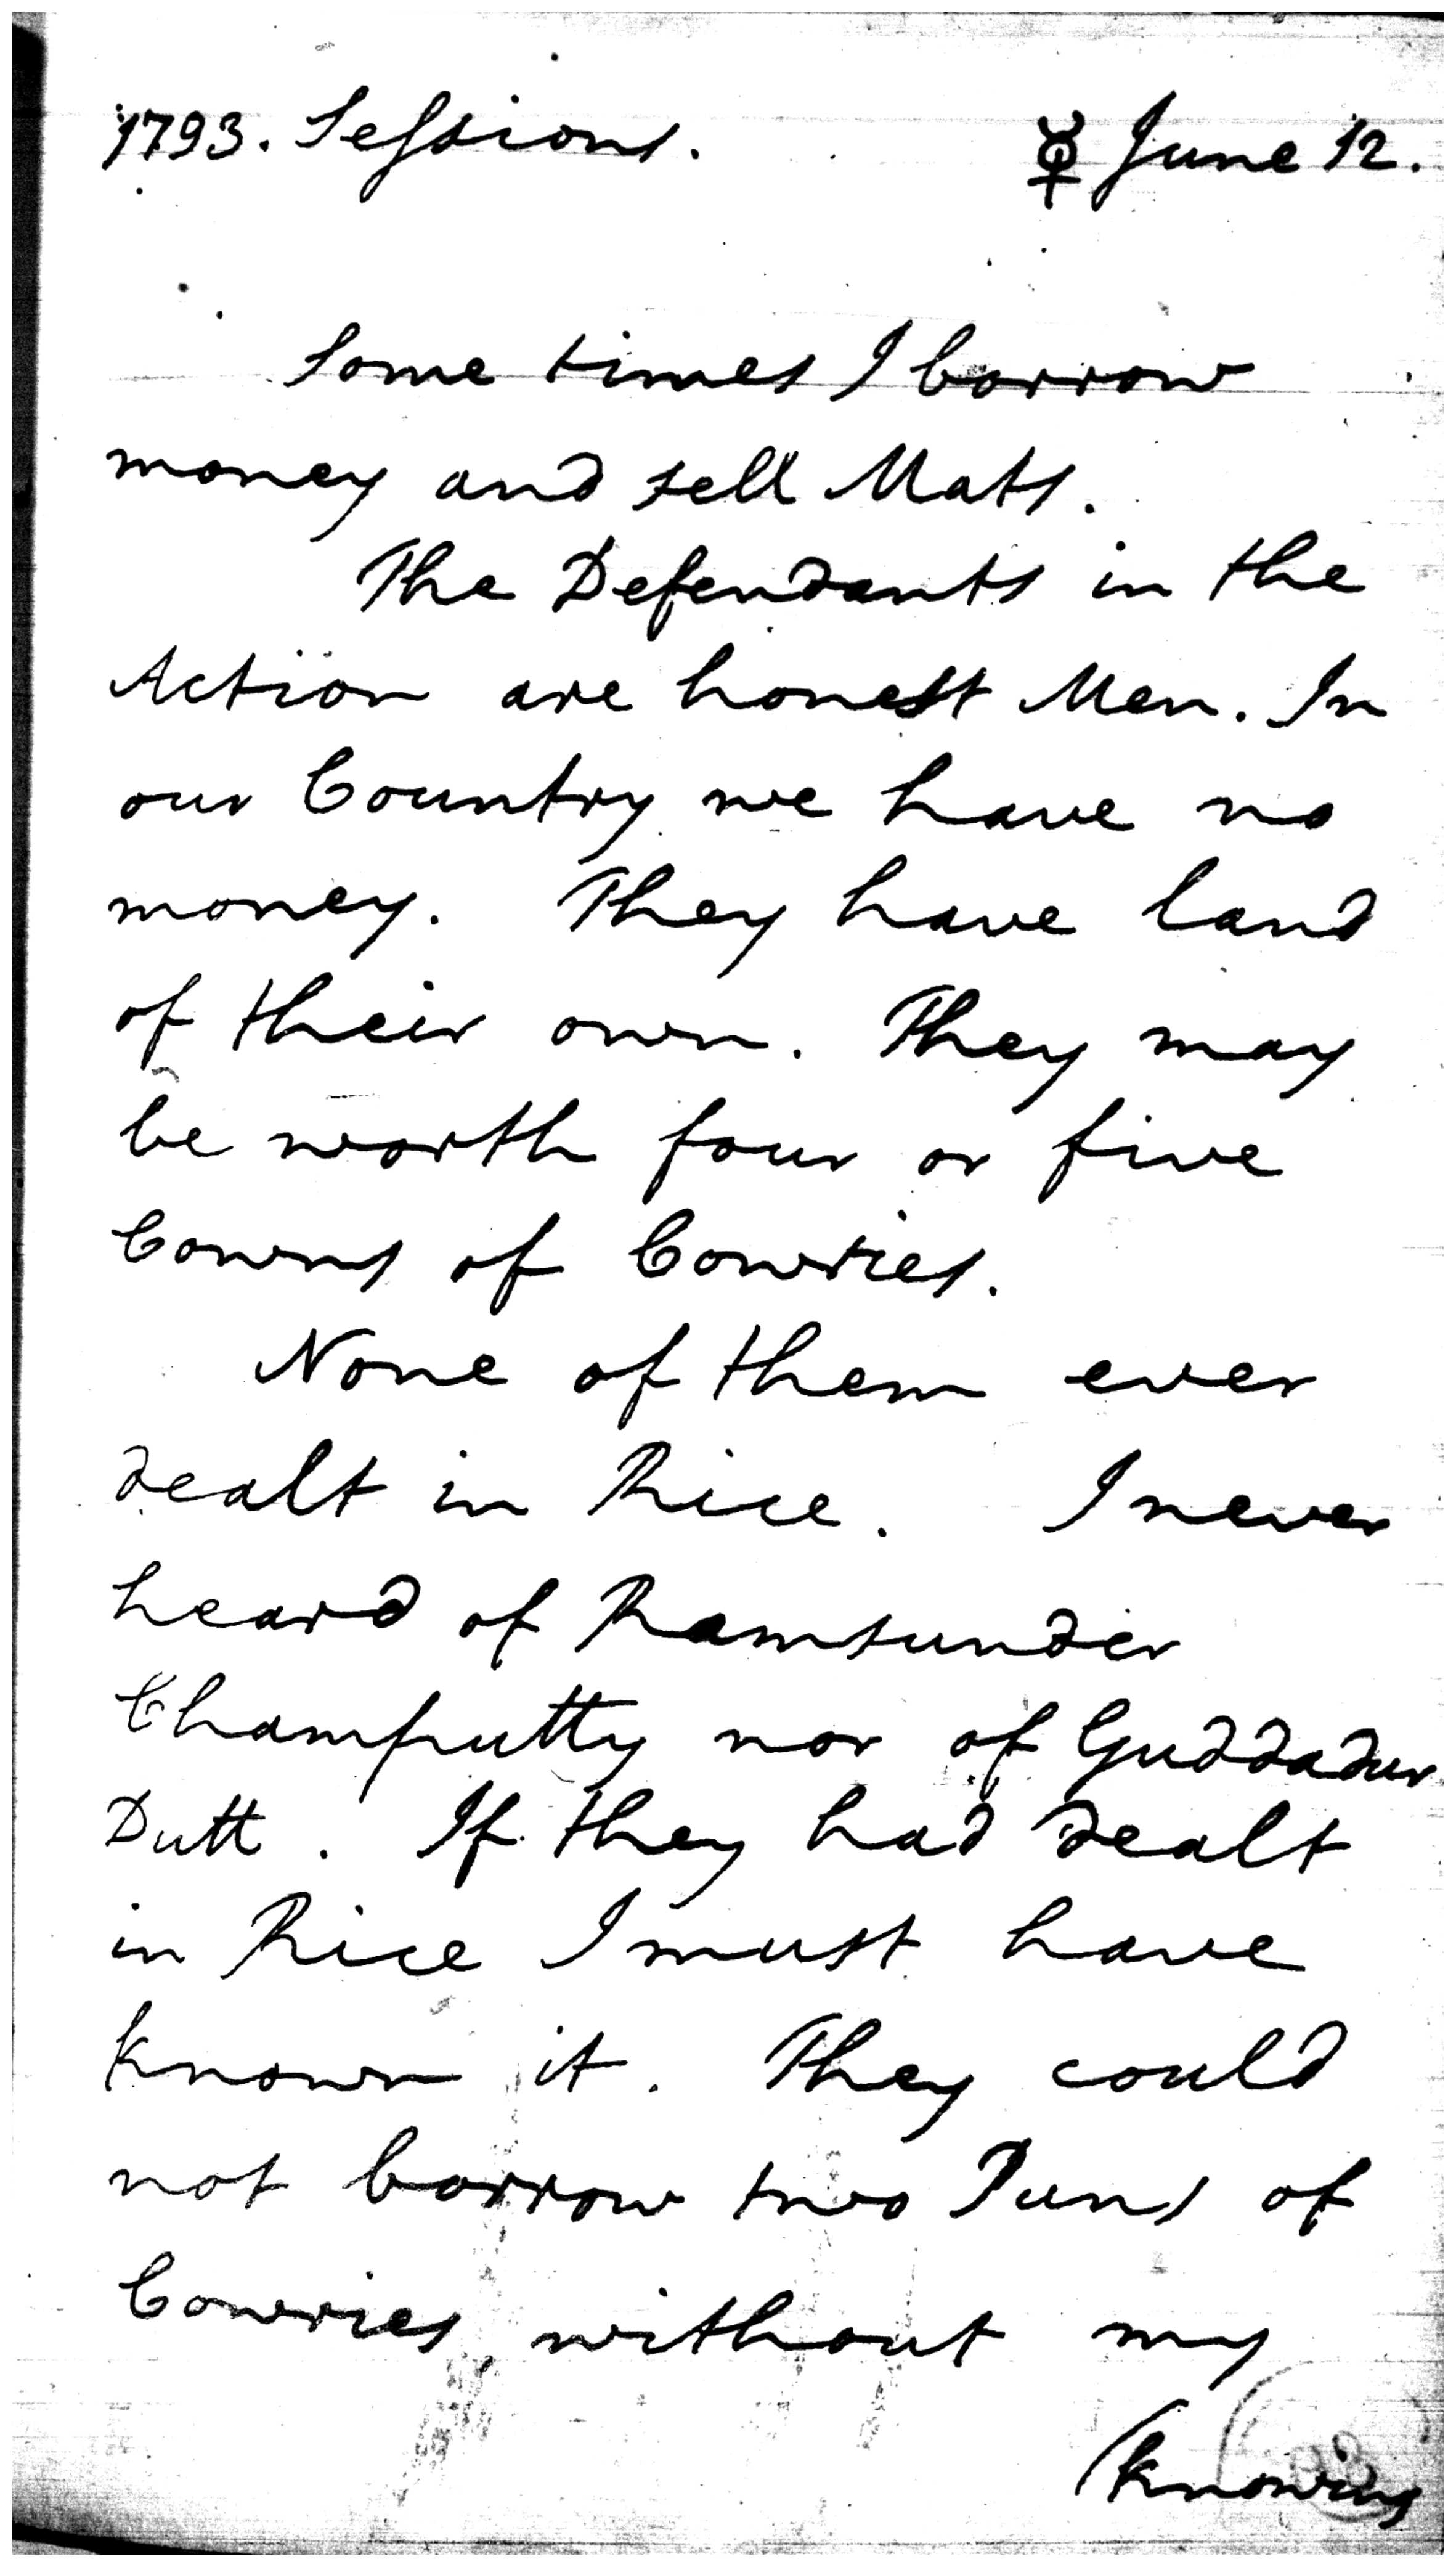 1793. Sessions. ☿ June 12.
Some times I borrow
money and sell Mats.
The Defendants in the
Action are honest Men. In
our Country we have no
money. They have land
of their own. They may
be worth four or five
Cowns of Cowries.
None of them ever
dealt in Rice. I never
heard of Ramsunder
Champutty nor of Guddadur
Dutt. If they had dealt
in Rice I must have
known it. They could
not borrow two Puns of
Cowries without my
knowing